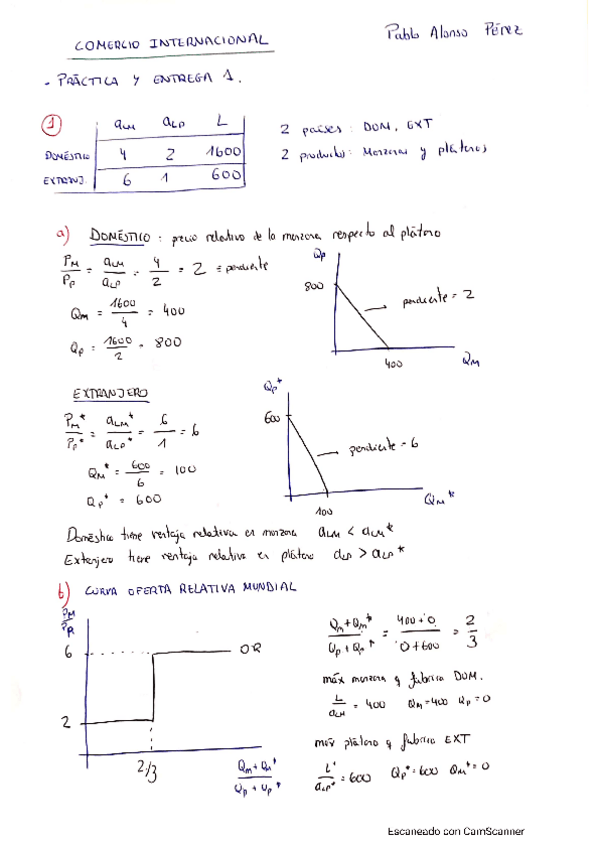 COMERCIO INTERNACIONAL
Pablo Alonso Pérez
- PRÁCTICA Y ENTREGA 1.
1
aLM aLP L
DOMÉSTICO 4 2 1600
EXTRANJ. 6 1 600
2 países: DOM, EXT
2 productos: Manzanas y plátanos
a) DOMÉSTICO: precio relativo de la manzana respecto al plátano
PM/PP = aLM/aLP = 4/2 = 2 = pendiente
QM = 1600/4 = 400
QP = 1600/2 = 800
QP
800
pendiente = 2
400
QM
EXTRANJERO
PM*/PP* = aLM*/aLP* = 6/1 = 6
QM* = 600/6 = 100
QP* = 600
QP*
600
pendiente = 6
100
QM*
Doméstico tiene ventaja relativa en manzana aLM < aLM*
Extranjero tiene ventaja relativa en plátano aLP > aLP*
b) CURVA OFERTA RELATIVA MUNDIAL
PM/PR
6
OR
2
2/3
Qm + Qm*/Qp + Qp*
Qm + Qm*/Qp + Qp* = 400 + 0/0 + 600 = 2/3
máx manzana q fabrica DOM.
L/aLM = 400 Qm = 400 Qp = 0
máx plátano q fabrica EXT
L*/aLP* = 600 Qp* = 600 Qm* = 0
Escaneado con CamScanner